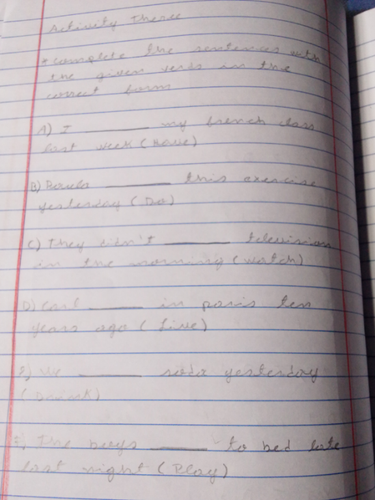 Activity Three
* complete the sentences with
the given verbs in the
correct form
A) I ______ my french class
last week (Have)
B) Paula ______ this exercise
yesterday (Do)
C) They didn't ______ television
in the morning (watch)
D) Carl ______ in paris ten
years ago (Live)
E) We ______ soda yesterday
(Drink)
F) The boys ______ to bed late
last night (Play)